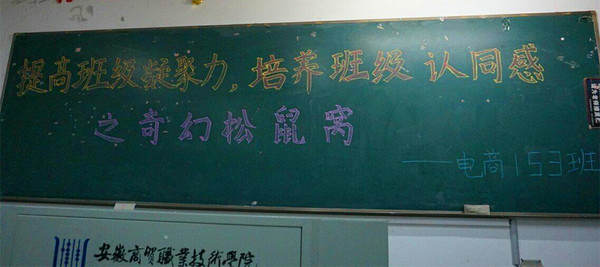 提高班级凝聚力,培养班级认同感
之奇幻松鼠窝
——电商153班
安徽商贸職業技術學院